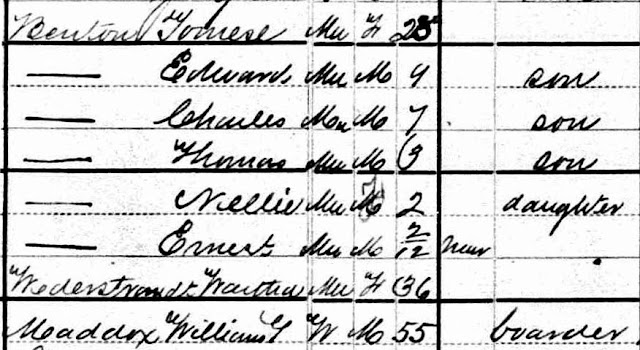 Benton Tomese Mu F 28
— Edward Mu M 9 son
— Charles Mu M 7 son
— Thomas Mu M 3 son
— Nellie Mu 2 daughter
— Ernest Mu M 2/12
Wederstrandt Mu F 36
Maddox William W M 55 boarder